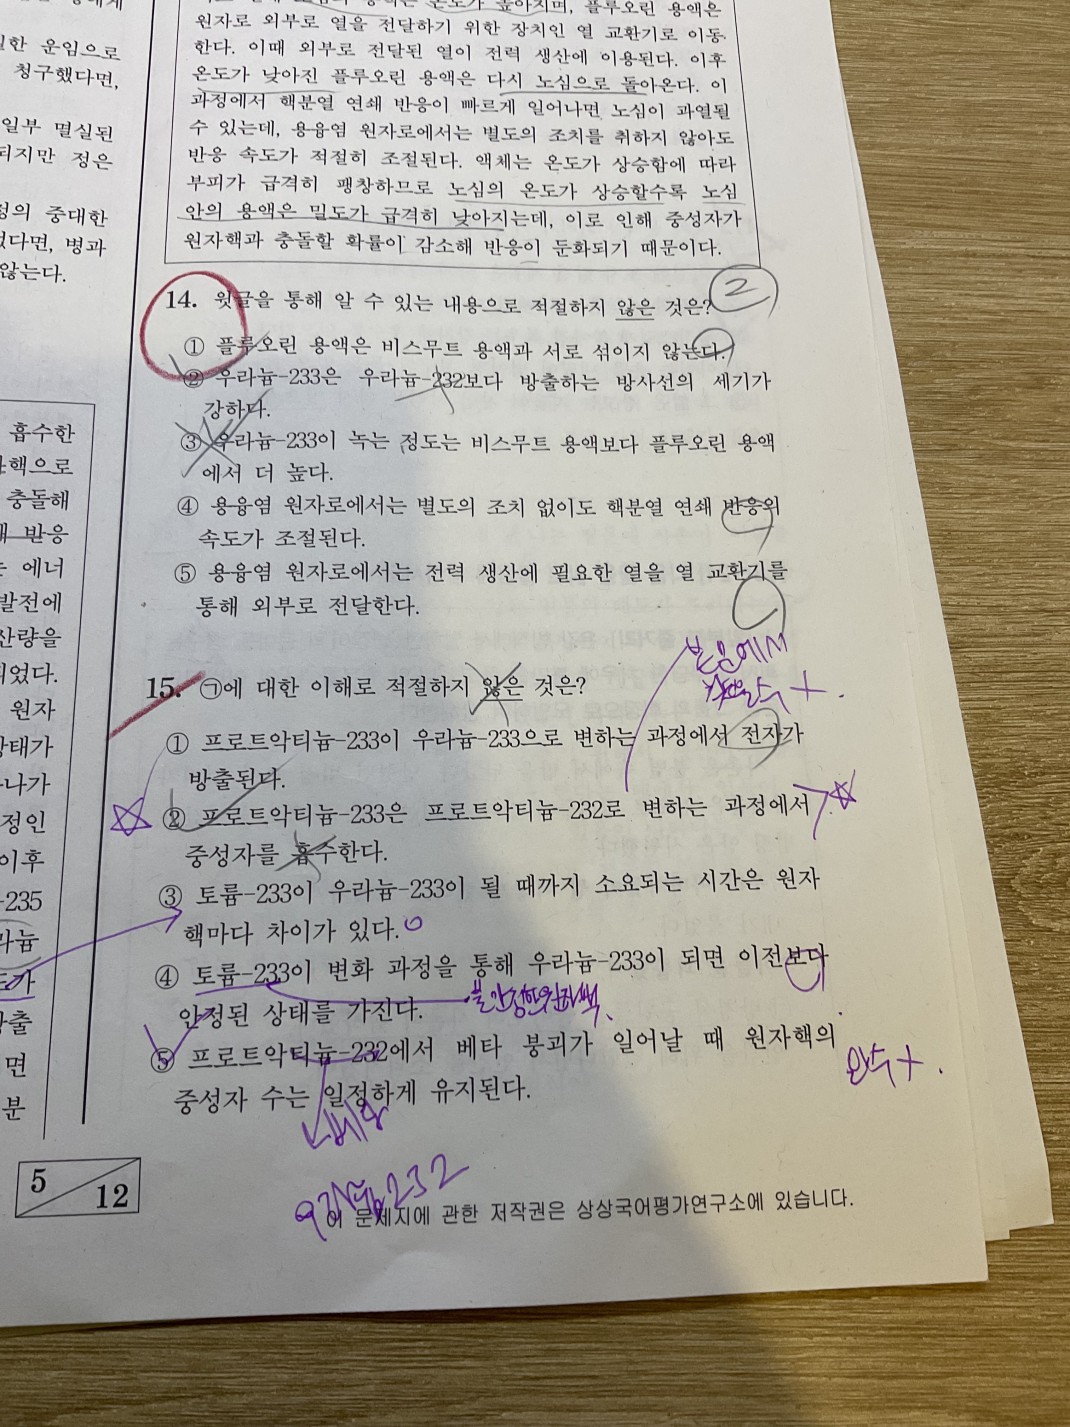 일한 운임으로
청구했다면,
일부 멸실된
되지만 정은
정의 중대한
었다면, 병과
않는다.
흡수한
자핵으로
충돌해
반응
에너
발전에
산량을
되었다.
원자
상태가
나가
정인
이후
-235
라늄
방출
면
분
5
12
플루오린 용액은
원자로 외부로 열을 전달하기 위한 장치인 열 교환기로 이동
한다. 이때 외부로 전달된 열이 전력 생산에 이용된다. 이후
온도가 낮아진 플루오린 용액은 다시 노심으로 돌아온다. 이
과정에서 핵분열 연쇄 반응이 빠르게 일어나면 노심이 과열될
수 있는데, 용융염 원자로에서는 별도의 조치를 취하지 않아도
반응 속도가 적절히 조절된다. 액체는 온도가 상승함에 따라
부피가 급격히 팽창하므로 노심의 온도가 상승할수록 노심
안의 용액은 밀도가 급격히 낮아지는데, 이로 인해 중성자가
원자핵과 충돌할 확률이 감소해 반응이 둔화되기 때문이다.
14. 윗글을 통해 알 수 있는 내용으로 적절하지 않은 것은? 2
① 플루오린 용액은 비스무트 용액과 서로 섞이지 않는다.
② 우라늄-233은 우라늄-232보다 방출하는 방사선의 세기가
강하다.
③ 우라늄-233이 녹는 정도는 비스무트 용액보다 플루오린 용액
에서 더 높다.
④ 용융염 원자로에서는 별도의 조치 없이도 핵분열 연쇄 반응의
속도가 조절된다.
⑤ 용융염 원자로에서는 전력 생산에 필요한 열을 열 교환기를
통해 외부로 전달한다.
15. ㉠에 대한 이해로 적절하지 않은 것은?
① 프로트악티늄-233이 우라늄-233으로 변하는 과정에서 전자가
방출된다.
② 프로트악티늄-233은 프로트악티늄-232로 변하는 과정에서
중성자를 흡수한다.
③ 토륨-233이 우라늄-233이 될 때까지 소요되는 시간은 원자
핵마다 차이가 있다.
④ 토륨-233이 변화 과정을 통해 우라늄-233이 되면 이전보다
불안정한원자핵
안정된 상태를 가진다.
⑤ 프로트악티늄-232에서 베타 붕괴가 일어날 때 원자핵의
중성자 수는 일정하게 유지된다.
베타
우라늄232
이 문제지에 관한 저작권은 상상국어평가연구소에 있습니다.